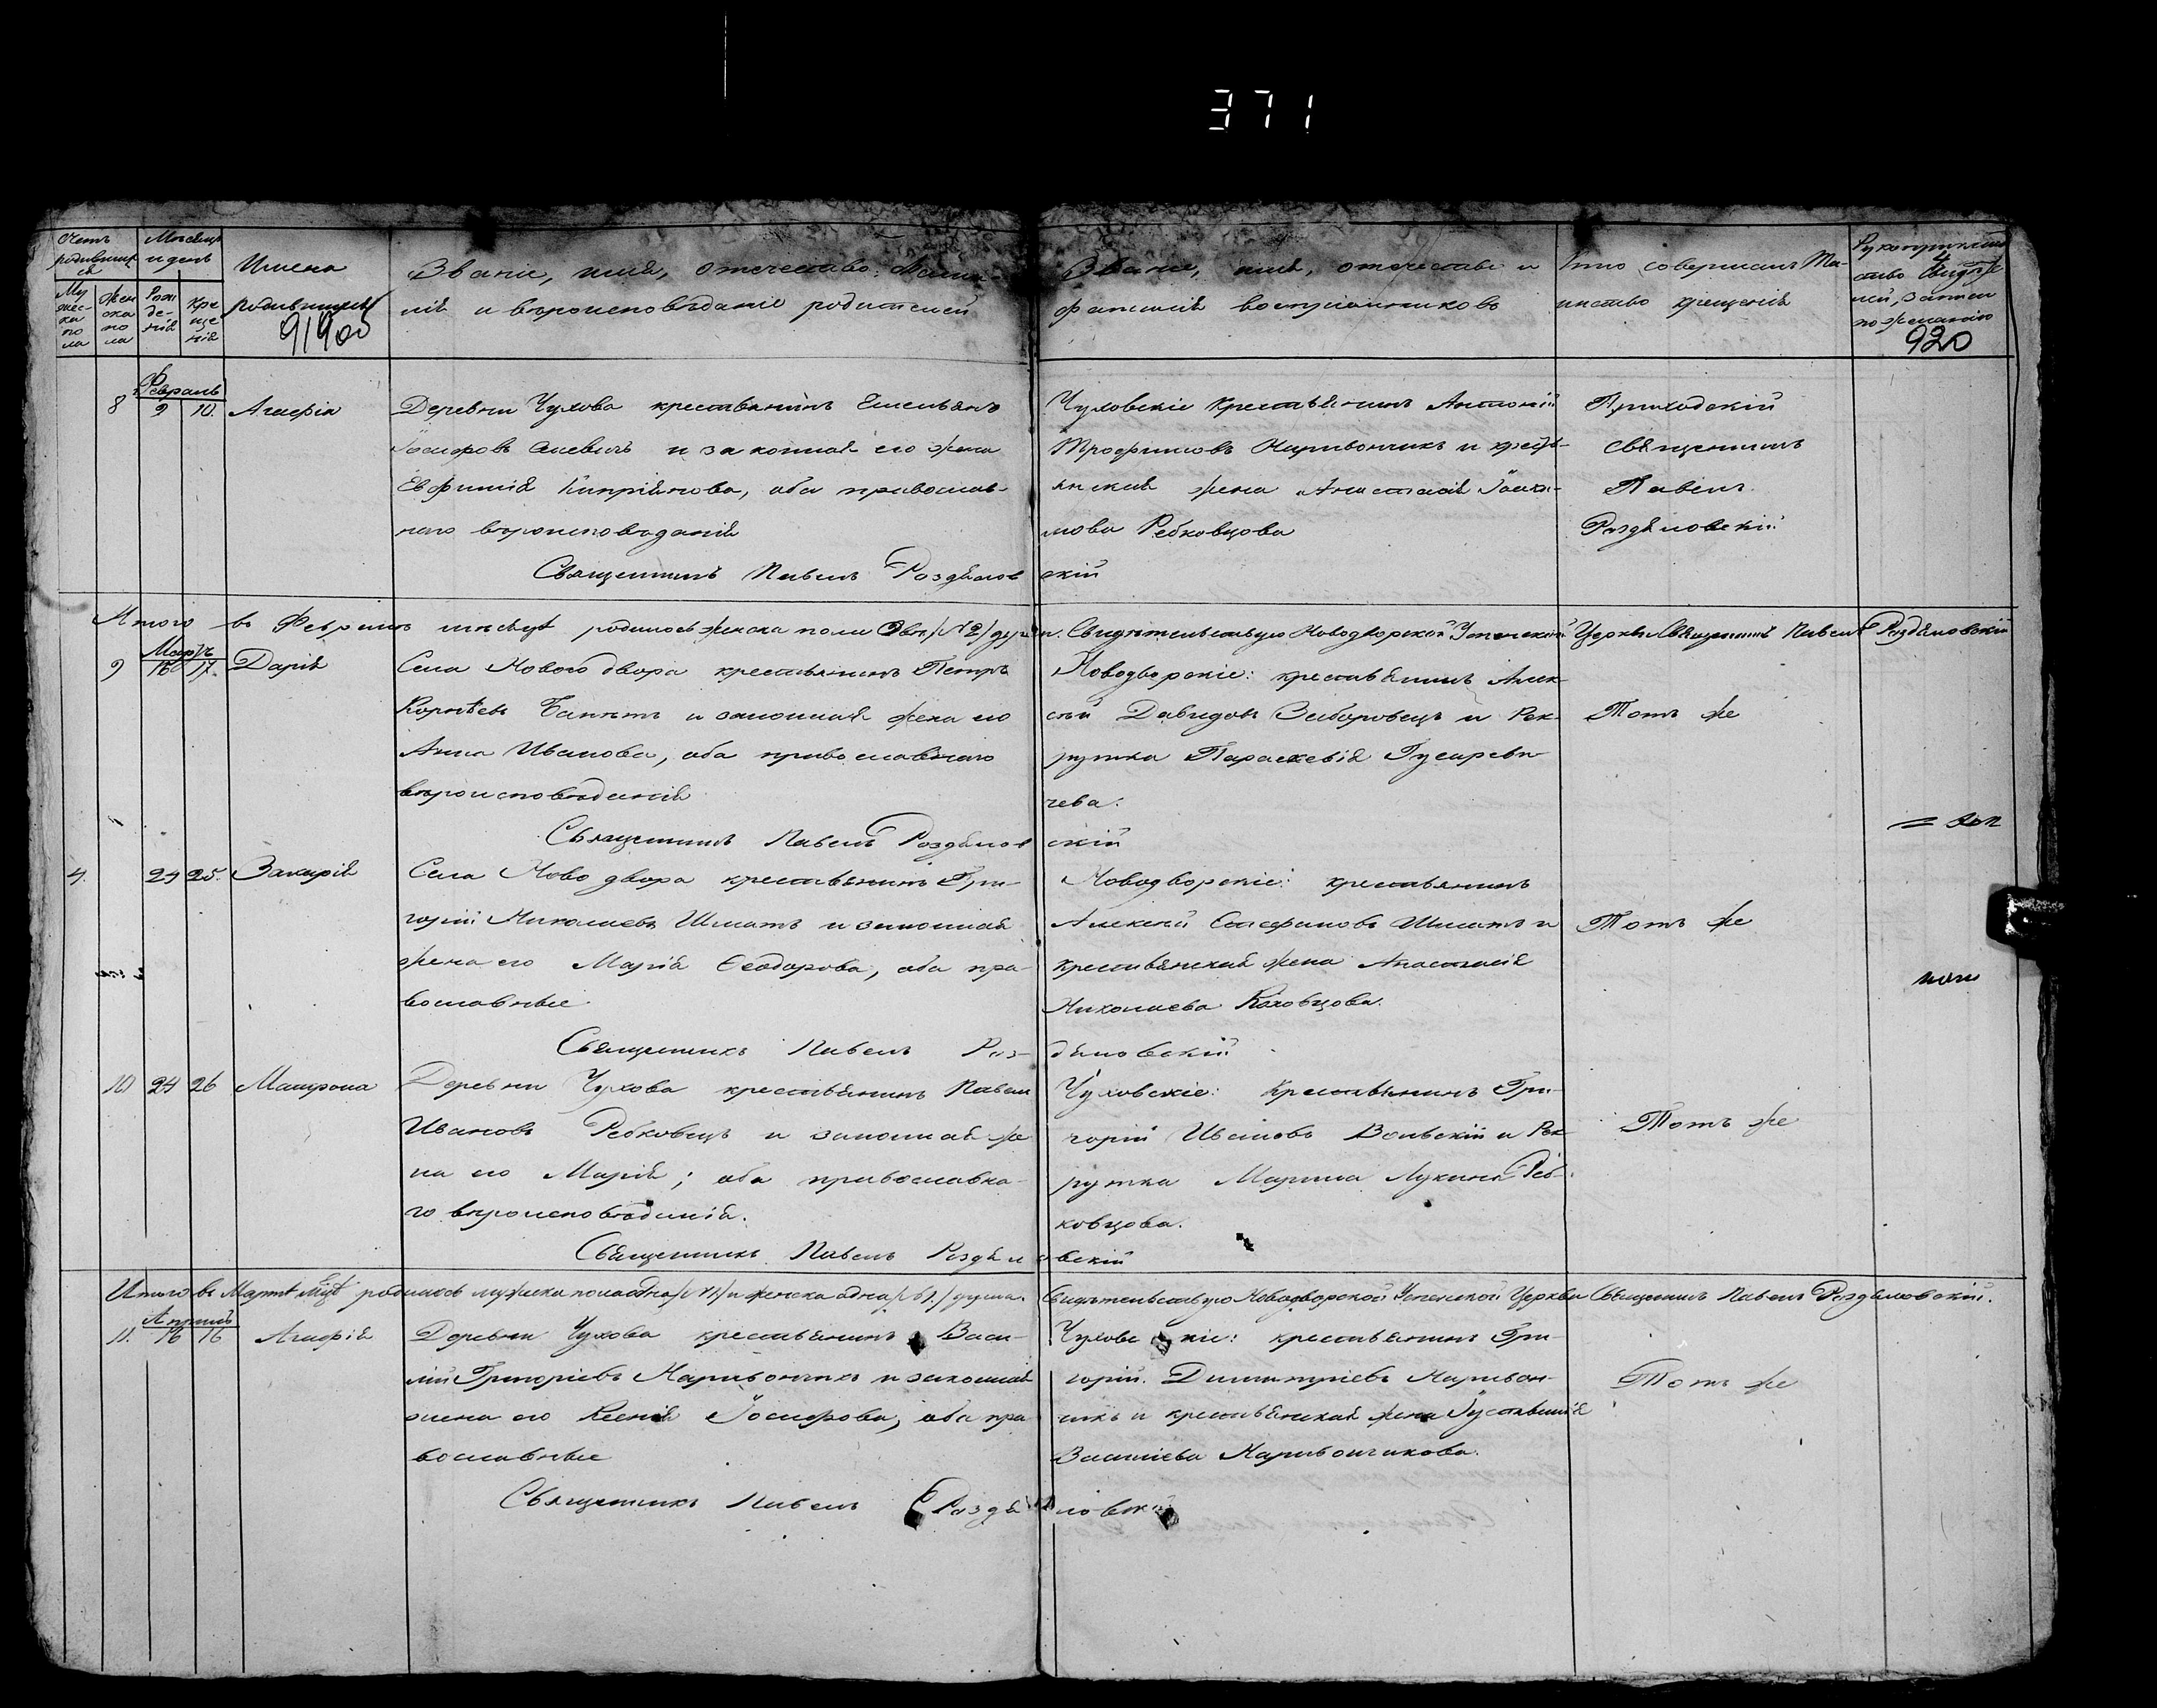 371
Счетъ родившихся
Мѣсяцъ и день
Имена родившихся
Званіе, имя, отчество, фами-
лія и вѣроисповѣданіе родителей
Званіе, имя, отчество и
фамилія воспріемниковъ
Кто совершалъ Та-
инство крещенія
Рукоприклад
ство свидѣте
лей записи
по желанію
Му
жес-
ка
по
ла
Жен
ска
по
ла
Рож
де-
нія
Кре
ще
нія
919об
920
Февраль
8 9 10. Агафія
Деревни Чухова крестьянинъ Емельянъ
Іосифовъ и законная его жена
Евфимія Кипріянова, оба православ-
наго вѣроисповѣданія
Священникъ Павелъ Раздяловскій
Чуховскіе крестьянинъ Антоній
Трофимовъ Наривончикъ и крестьянская жена Анастасія
мова Ребковцова
Приходскій
священникъ
Павелъ
Раздяловскій
Итого въ Февралѣ мѣсяцѣ родилось женска пола двѣ /№ 2/ души. Свидѣтельствую Новодворской Успенской Церкви Священникъ Павелъ Раздяловскій
Мартъ
9 16 17. Дарія
Села Нового двора крестьянинъ Петръ
Корнѣевъ и законная жена его
Анна Иванова, оба православнаго
вѣроисповѣданія
Священникъ Павелъ Раздяловскій
Новодворскіе: крестьянинъ Алек-
сѣй Давидовъ Заборовецъ и Рек-
рутка Параскевія Гусареви-
чева.
Тотъ же
4. 24 25. Захарія
Села Ново двора крестьянинъ Гри-
горій Николаевъ Шматъ и законная
жена его Марія Ѳеодорова, оба пра-
вославные
Священникъ Павелъ Раздяловскій
Новодворскіе: крестьянинъ
Алексѣй Стефановъ Шматъ и
крестьянская жена Анастасія
Николаева Коховцова.
Тотъ же
10 24 26 Матрона
Деревни Чухова крестьянинъ Павелъ
Ивановъ Ребковецъ и законная же
на его Марія; оба православна-
го вѣроисповѣданія.
Священникъ Павелъ Раздяловскій
Чуховскіе: Крестьянинъ Гри-
горій Ивановъ Вольскій и Рек
рутка Марина Лукина Реб-
ковцова.
Тотъ же
Итого въ Мартѣ мцѣ родилось мужска пола одна /№ 1/ и женска одна душа. Свидѣтельствую Новодворской Успенской Церкви Священникъ Павелъ Раздяловскій.
Апрѣль
11. 16 16 Агафія
Деревни Чухова крестьянинъ Васи-
лій Григоріевъ Наривончикъ и законная
жена его Ксенія Іосифова, оба пра-
вославные
Священникъ Павелъ Раздяловскій
Чуховскіе: крестьянинъ Гри-
горій Димитріевъ Наривон-
чикъ и крестьянская жена
Василіева Наривончикова.
Тотъ же